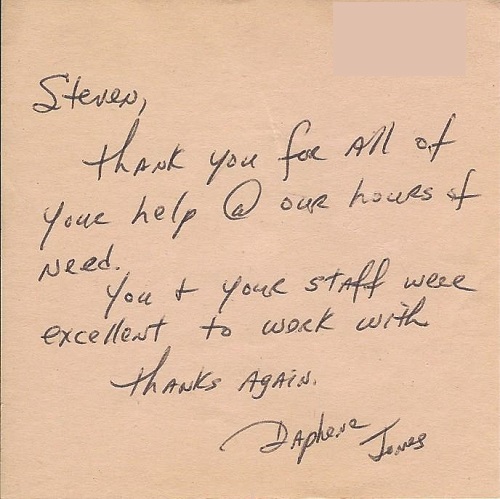 Steven,
Thank you for all of
your help @ our hours of
need.
You + your staff were
excellent to work with
Thanks Again.
Daphene Jones